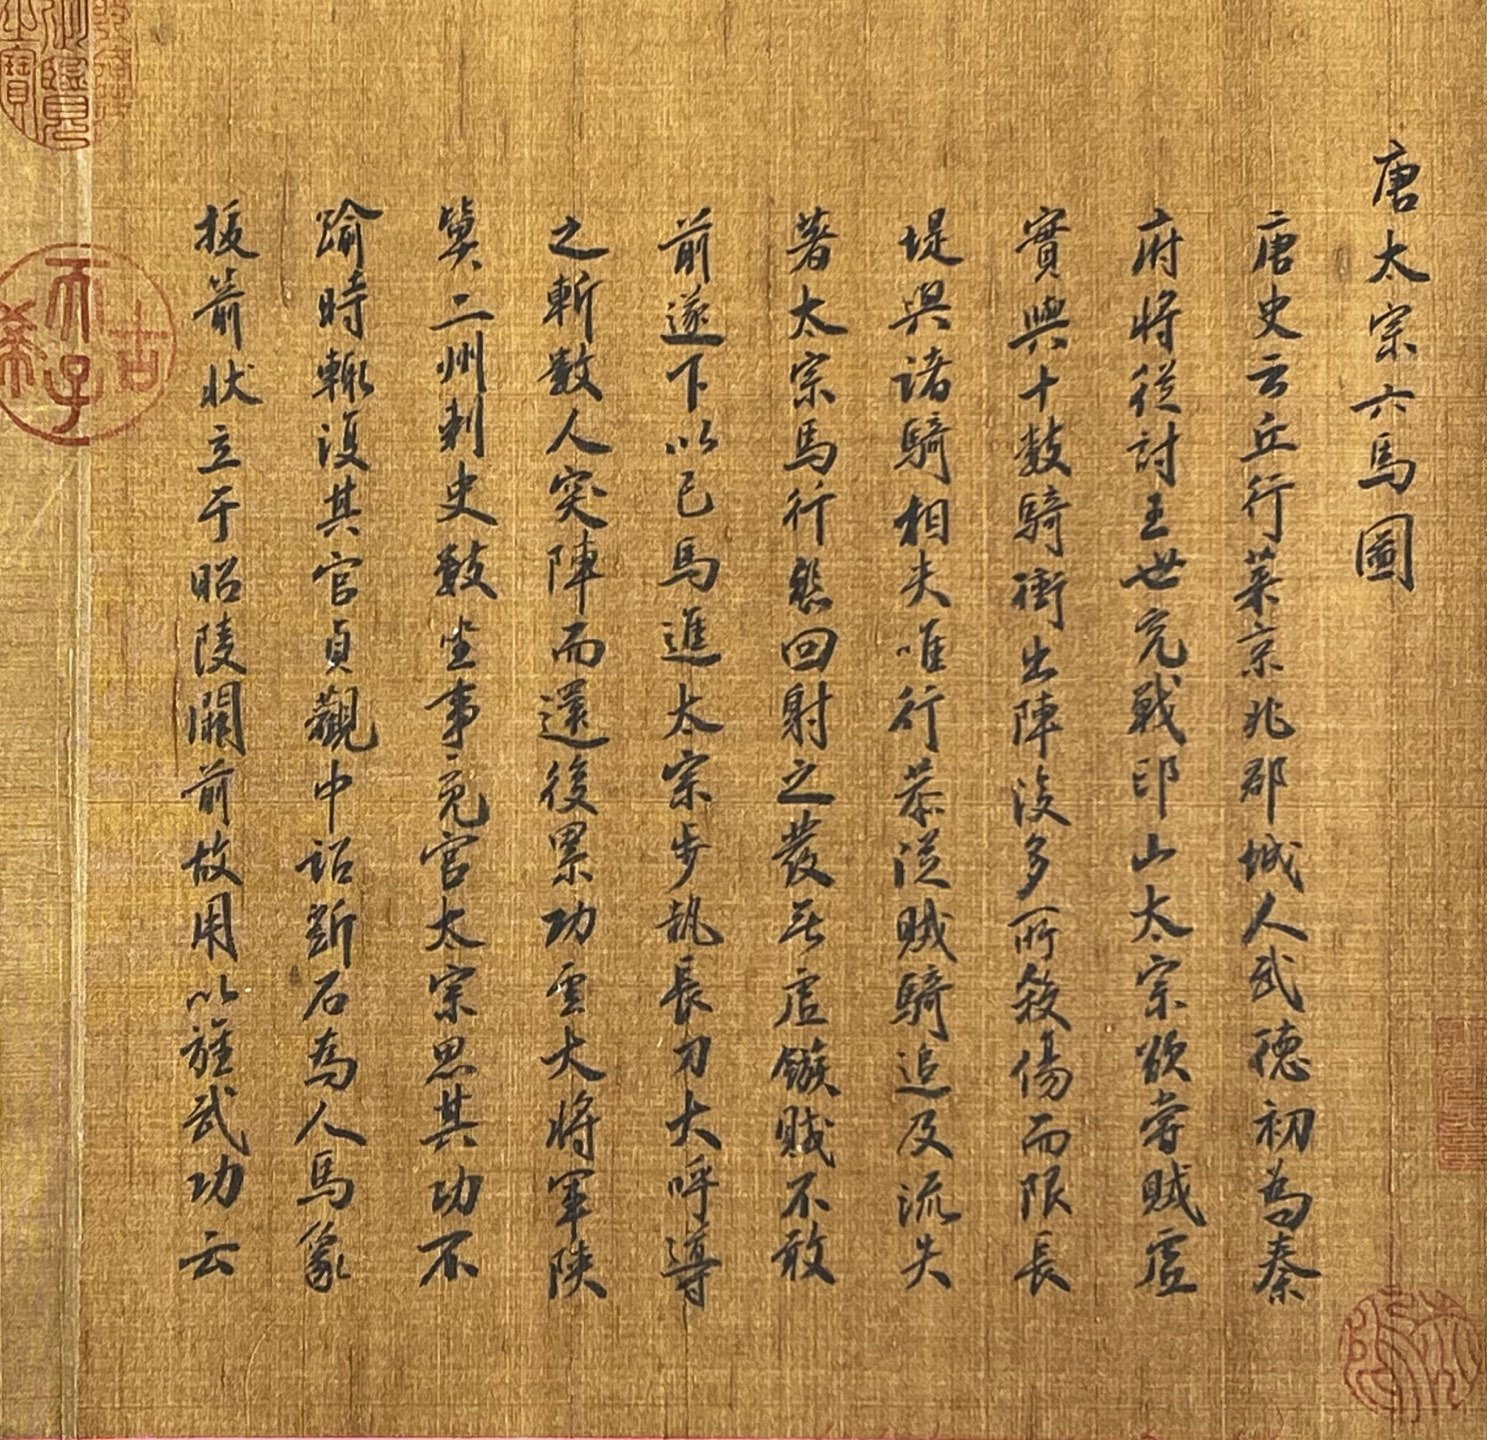 唐太宗六馬圖
唐史云丘行恭京兆郡城人武德初為秦
府將從討王世充戰邙山太宗欲嘗賊虛
實與十數騎衝出陣後多所殺傷而限長
堤與諸騎相失唯行恭從賊騎追及流矢
著太宗馬行恭回射之發無虛鏃賊不敢
前遂下以己馬進太宗步執長刀大呼導
之斬數人突陣而還後累功雲大將軍陝
冀二州刺史數坐事免官太宗思其功不
踰時輒復其官貞觀中詔斲石為人馬象
拔箭狀立于昭陵闕前故用以旌武功云
古希天子